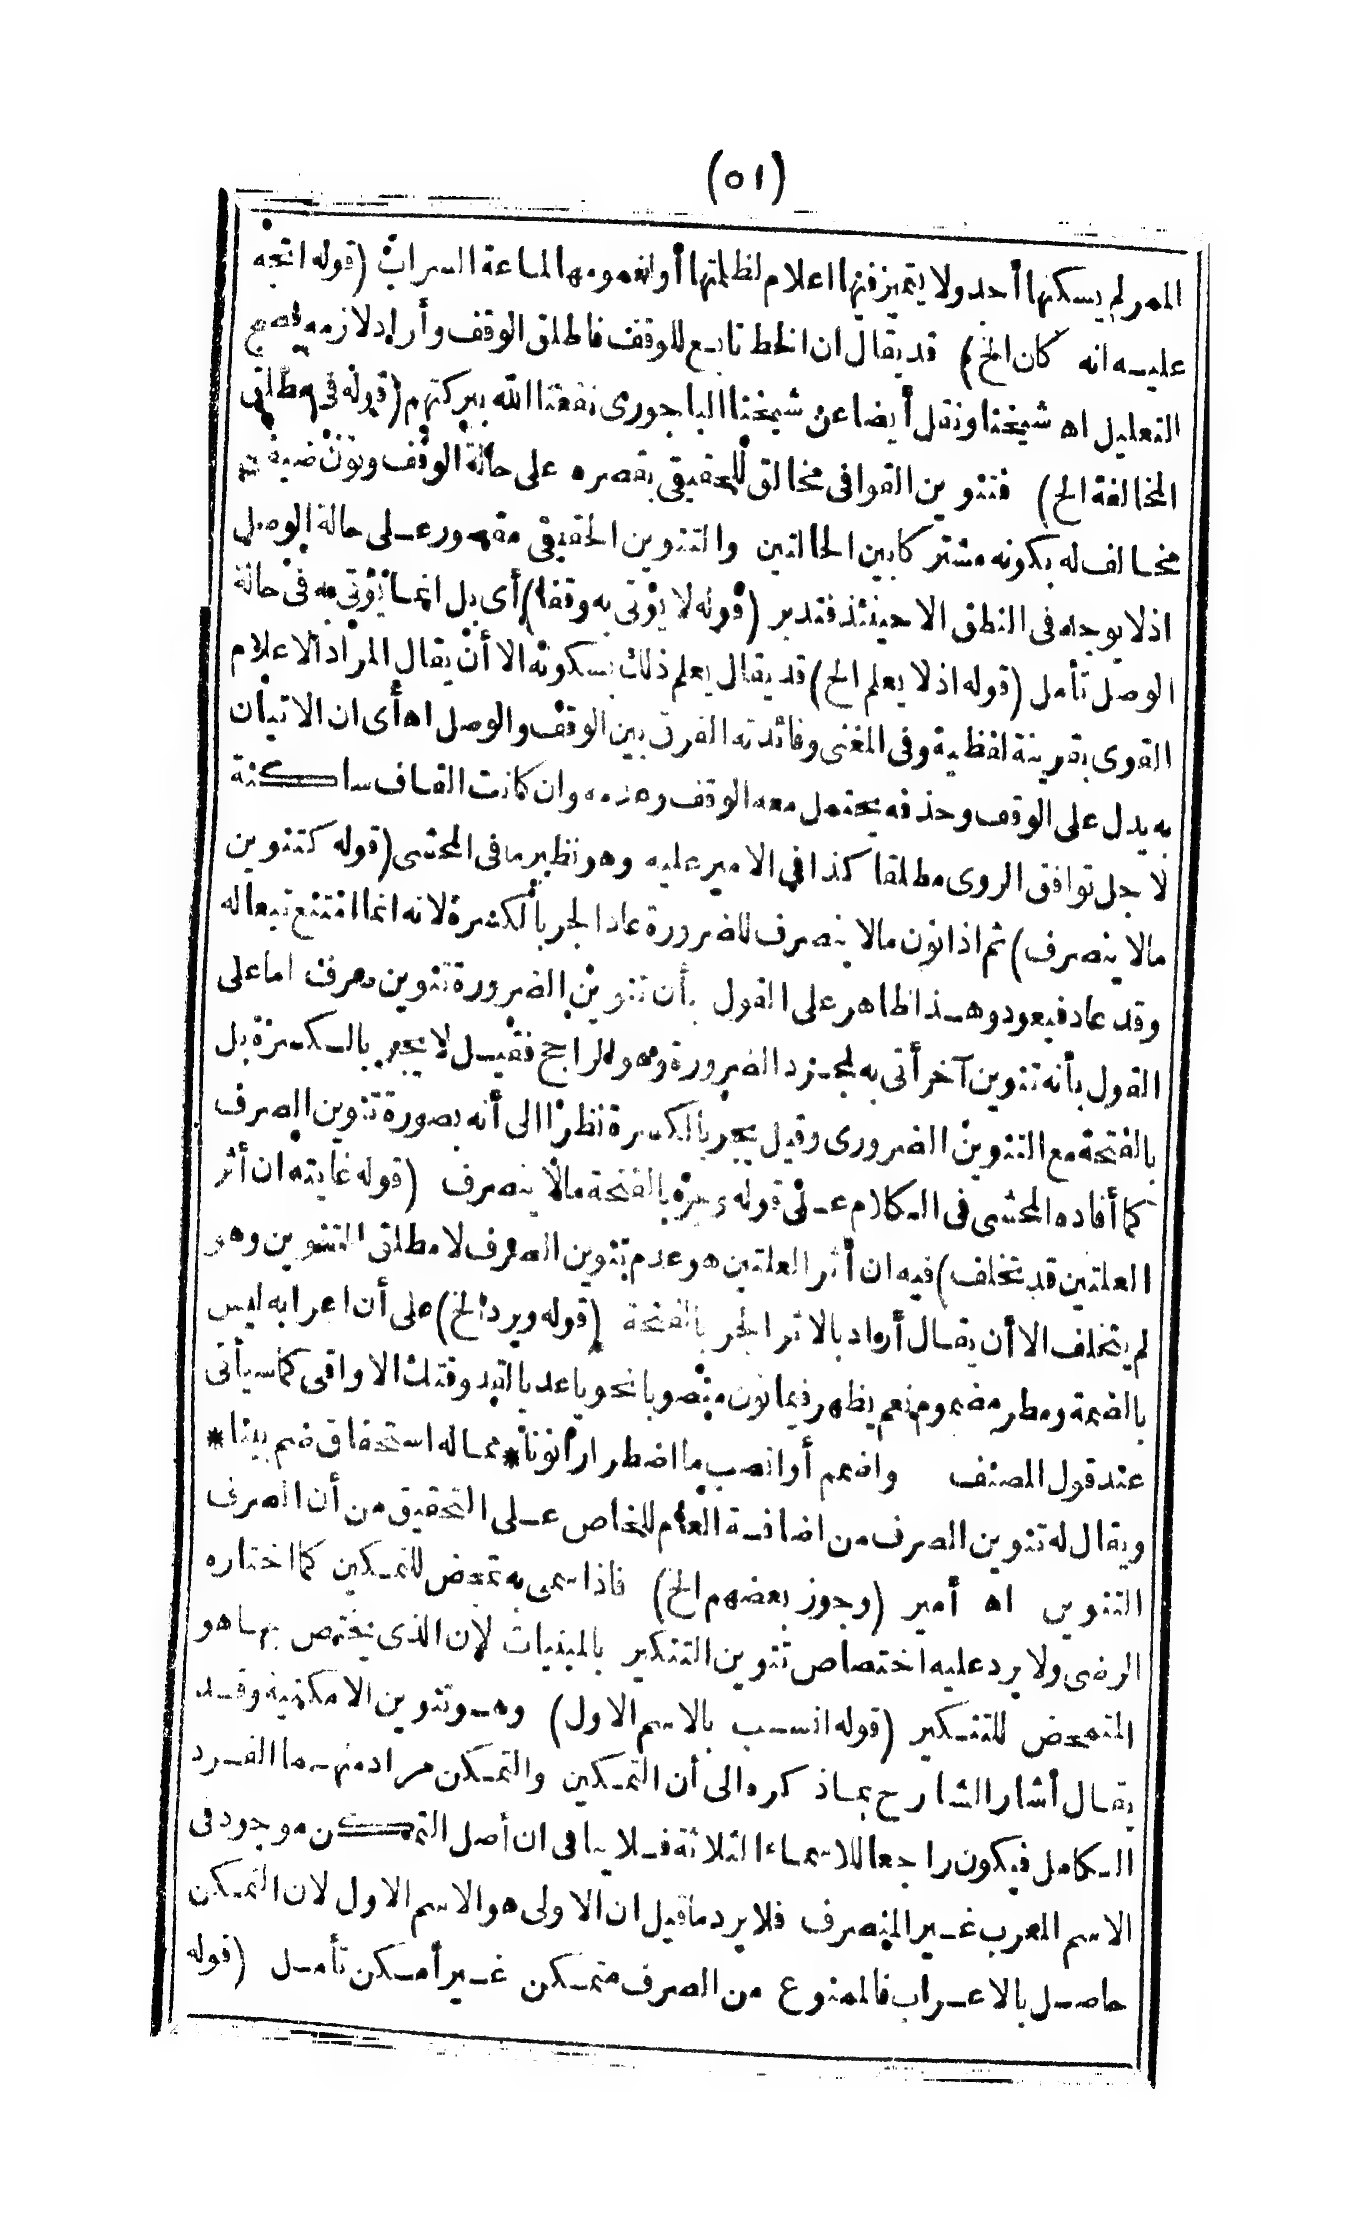 (٥١)
الممر لم يسكنها أحد ولا يتميز فيها اعلام لظلمتها أو لغمومها لماعة السراب (قوله اتجه
عليـه انه كان الخ) قد يقال ان الخط تابع للوقف فاطلق الوقف وأراد لازمه فصح
التعليل اه شيخنا ونقل أيضا عن شيخنا الباجورى نفعنا الله ببركتهم (قوله فى مطلق
المخالفة الخ) فتنوين القوافى مخالف للحقيقى بقصره على حالة الوقف ونون ضيفن
مخالف له بكونه مشتركا بين الحالتين والتنوين الحقيقى مقصور عـلى حالة الوصل
اذ لا يوجد فى النطق الا حينئذ فتدبر (قوله لا يؤتى به وقفا) أى بل انما يؤتى به فى حالة
الوصل تأمل (قوله اذ لا يعلم الخ) قد يقال يعلم ذلك بسكونه الا أن يقال المراد الاعلام
القوى بقرينة لفظية وفى المغنى وفائدته الفرق بين الوقف والوصل اه أى ان الاتيان
به يدل على الوقف وحذفه يحتمل معه الوقف وعدمه وان كانت القاف ساكنة
لاجل توافق الروى مطلقا كذا فى الامير عليه وهو نظير ما فى المحشى (قوله كتنوين
مالا ينصرف) ثم اذا نون مالا ينصرف للضرورة عاد الجر بالكسرة لانه انما امتنع تبعا له
وقد عاد فيعود وهـذا ظاهر على القول بأن تنوين الضرورة تنوين صرف اما على
القول بأنه تنوين آخر أتى به لمجرد الضرورة وهو الراجح فقيـل لا يجر بالـكسرة بل
بالفتحة مع التنوين الضرورى وقيل يجر بالكسرة نظرا الى أنه بصورة تنوين الصرف
كما أفاده المحشى فى الـكلام عـلى قوله وجر بالفتحة مالا ينصرف (قوله غايته ان أثر
العلتين قد تخلف) فيه ان أثر العلتين هو عدم تنوين الصرف لا مطلق التنوين وهو
لم يتخلف الا أن يقـال أراد بالاثر الجر بالفتحة (قوله ويرد الخ) على أن اعرابه ليس
بالضمة ومطر مضموم نعم يظهر فيما نون منصوبا نحو يا عديا لقد وقتك الاواقى كما سيأتى
عند قول المصنف واضمم أو انصب ما اضطرارا نونا * ممـا له استحقاق ضم بينا *
ويقال له تنوين الصرف من اضافـة العام للخاص عـلى التحقيق من أن الصرف
التنوين اه أمير (وجوز بعضهم الخ) فاذا سمى به تمحض للتمـكين كما اختاره
الرضى ولا يرد عليه اختصاص تنوين التنكير بالمبنيات لان الذى يختص بهـا هو
المتمحض للتنـكير (قوله انسـب بالاسم الاول) وهـو تنوين الامكنية وقـد
يقـال أشار الشارح بمـا ذكره الى أن التمـكين والتمـكن مراد منهـما الفـرد
الـكامل فيكون راجعا للاسمـاء الثلاثة فـلا ينافى ان أصل التمكن موجود فى
الاسم المعرب غـير المنصرف فلا يرد ما قيل ان الاولى هو الاسم الاول لان التمـكن
حاصـل بالاعـراب فالممنوع من الصرف متمـكن غـير أمـكن تأمـل (قوله